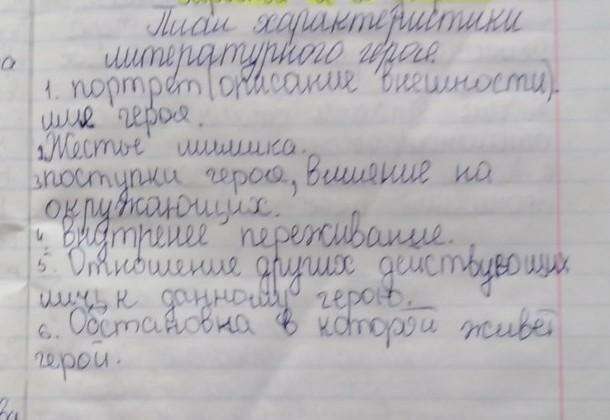 План характеристики
литературного героя.
1. портрет (описание внешности).
имя героя.
2 Жесты мимика.
3 поступки героя, влияние на
окружающих.
4. внутренее переживание.
5. Отношение других действующих
лиц к данному герою.
6. Обстановка в которой живёт
герой.